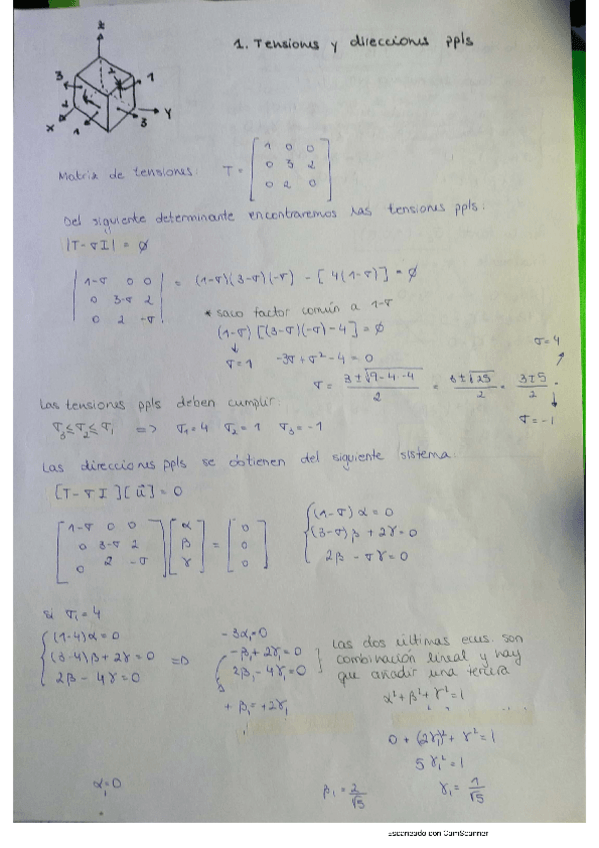 1. Tensiones y direcciones ppls
z
3
2
1
2
x
1
3
Y
Matriz de tensiones: T = [ 1 0 0
0 3 2
0 2 0 ]
Del siguiente determinante encontraremos las tensiones ppls:
|T-σI| = ∅
| 1-σ 0 0 | = (1-σ)(3-σ)(-σ) - [4(1-σ)] = ∅
0 3-σ 2
0 2 -σ
* saco factor común a 1-σ
(1-σ) [(3-σ)(-σ) - 4] = ∅
↓
σ=1 -3σ + σ² - 4 = 0
σ=4
σ = 3 ± √9-4·-4 / 2 = 3 ± √25 / 2 = 3 ± 5 / 2
σ = -1
Las tensiones ppls deben cumplir:
σ₃ ≤ σ₂ ≤ σ₁ => σ₁ = 4 σ₂ = 1 σ₃ = -1
Las direcciones ppls se obtienen del siguiente sistema:
[T-σI][û] = 0
[ 1-σ 0 0 ] [ α ] = [ 0 ] { (1-σ)α = 0
0 3-σ 2 β 0 (3-σ)β + 2γ = 0
0 2 -σ γ 0 2β - σγ = 0
si σ₁ = 4
{ (1-4)α = 0 - 3α₁ = 0
(3-4)β + 2γ = 0 => -β₁ + 2γ₁ = 0
2β - 4γ = 0 2β₁ - 4γ₁ = 0
+ β₁ = +2γ₁
Las dos últimas ecus. son
combinación lineal y hay
que añadir una tercera
α² + β² + γ² = 1
0 + (2γ₁)² + γ² = 1
5γ₁² = 1
α₁ = 0 β₁ = 2/√5 γ₁ = 1/√5
Escaneado con CamScanner